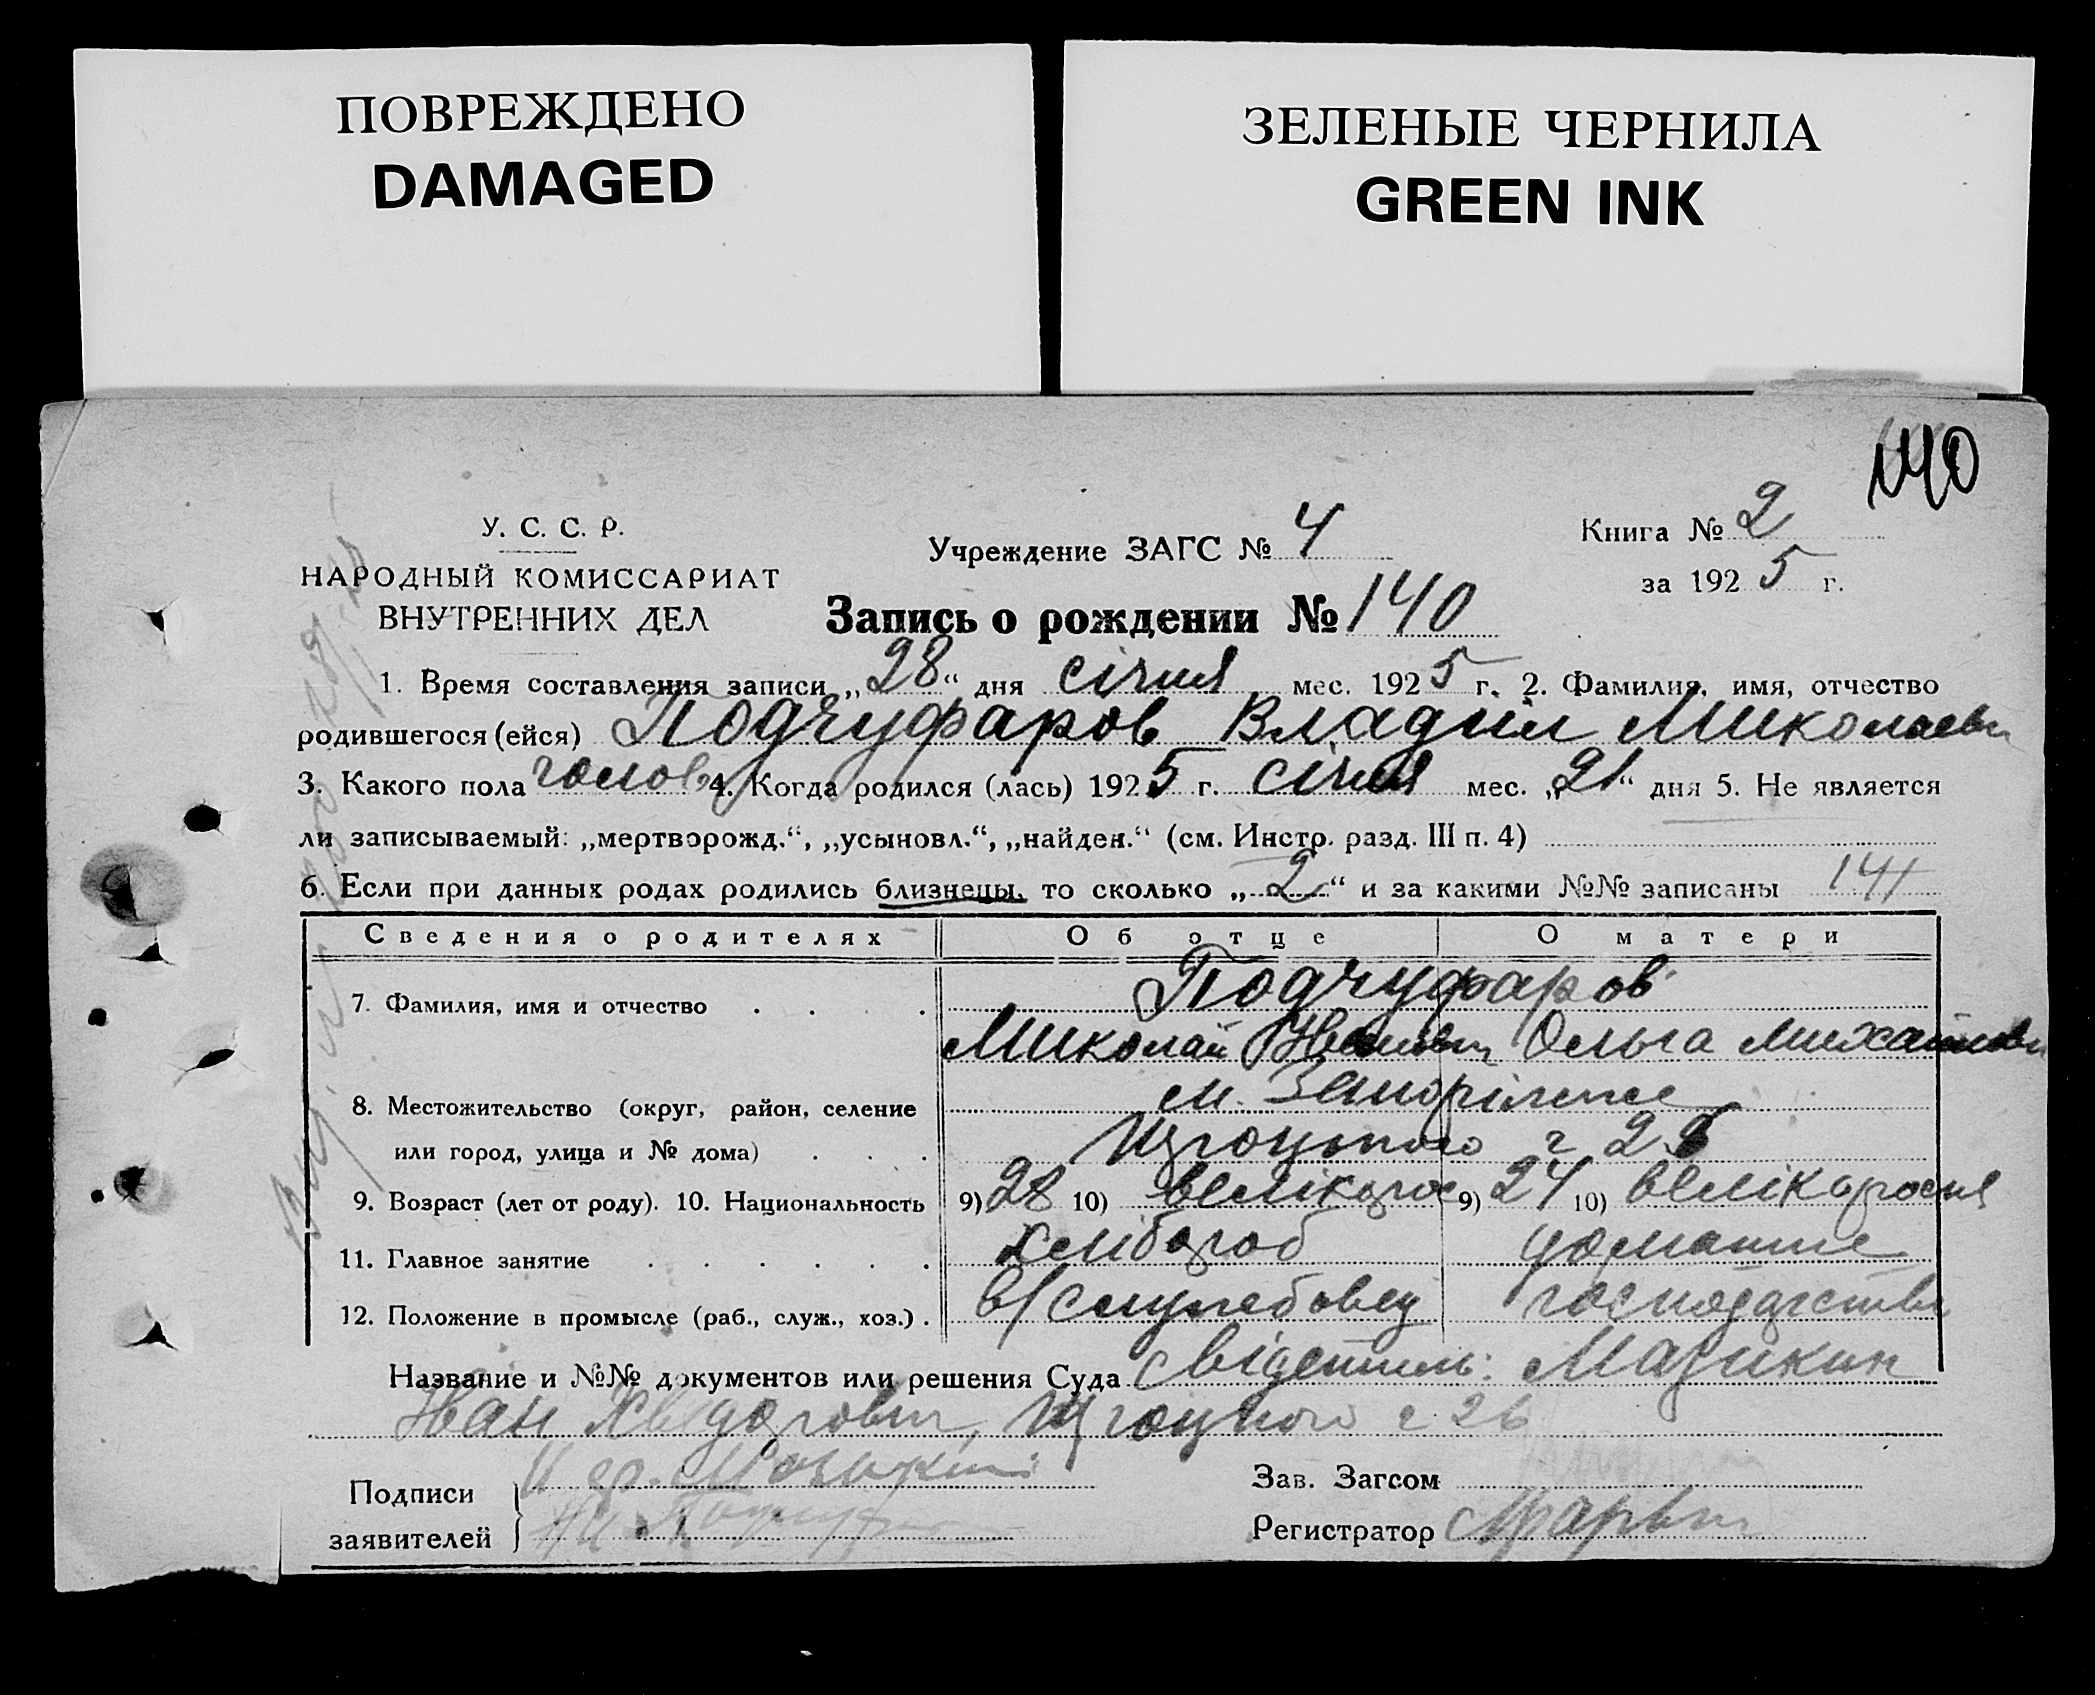 ПОВРЕЖДЕНО
DAMAGED
ЗЕЛЕНЫЕ ЧЕРНИЛА
GREEN INK
140
У. С. С. Р.
НАРОДНЫЙ КОМИССАРИАТ
ВНУТРЕННИХ ДЕЛ
Учреждение ЗАГС № 4
Книга № 2
за 1925 г.
Запись о рождении № 140
1. Время составления записи „28“ дня січня мес. 1925 г. 2. Фамилия, имя, отчество
родившегося (ейся) Подчуфаров Владим Миколаев
3. Какого пола чолов 4. Когда родился (лась) 1925 г. січня мес. „21“ дня 5. Не является
ли записываемый: „мертворожд.“, „усыновл.“, „найден.“ (см. Инстр. разд. III п. 4)
6. Если при данных родах родились близнецы, то сколько „2“ и за какими №№ записаны 141
Сведения о родителях Об отце О матери
7. Фамилия, имя и отчество Подчуфаров
Миколай Иванович Ольга Михайлов
8. Местожительство (округ, район, селение м. Запоріжже
или город, улица и № дома) ч 26
9. Возраст (лет от роду). 10. Национальность 9) 28 10) велікорос 9) 24 10) велікоросня
11. Главное занятие хлібороб домашнє
12. Положение в промысле (раб., служ., хоз.) в/службовец господарство
Название и №№ документов или решения Суда Мазикин
Иван Хведорович, ч 26
Подписи
заявителей
Зав. Загсом
Регистратор